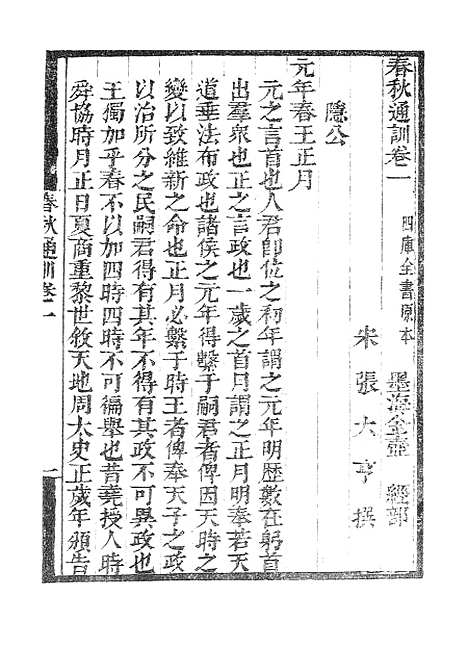 春秋通訓卷一
四庫全書原本　墨海金壺　經部
宋張大亨撰
隱公
元年春王正月
元之言首也人君卽位之初年謂之元年明歷數在躬首
出羣眾也正之言政也一歲之首月謂之正月明奉若天
道垂法布政也諸侯之元年得繫于嗣君者俾因天時之
變以致維新之命也正月必繫于時王者俾奉天子之政
以治所分之民嗣君得有其年不得有其政不可異政也
王獨加乎春不以加四時四時不可徧舉也昔堯授人時
舜協時月正日夏商重黎世敘天地周太史正歲年頒告
春秋通訓卷一
一